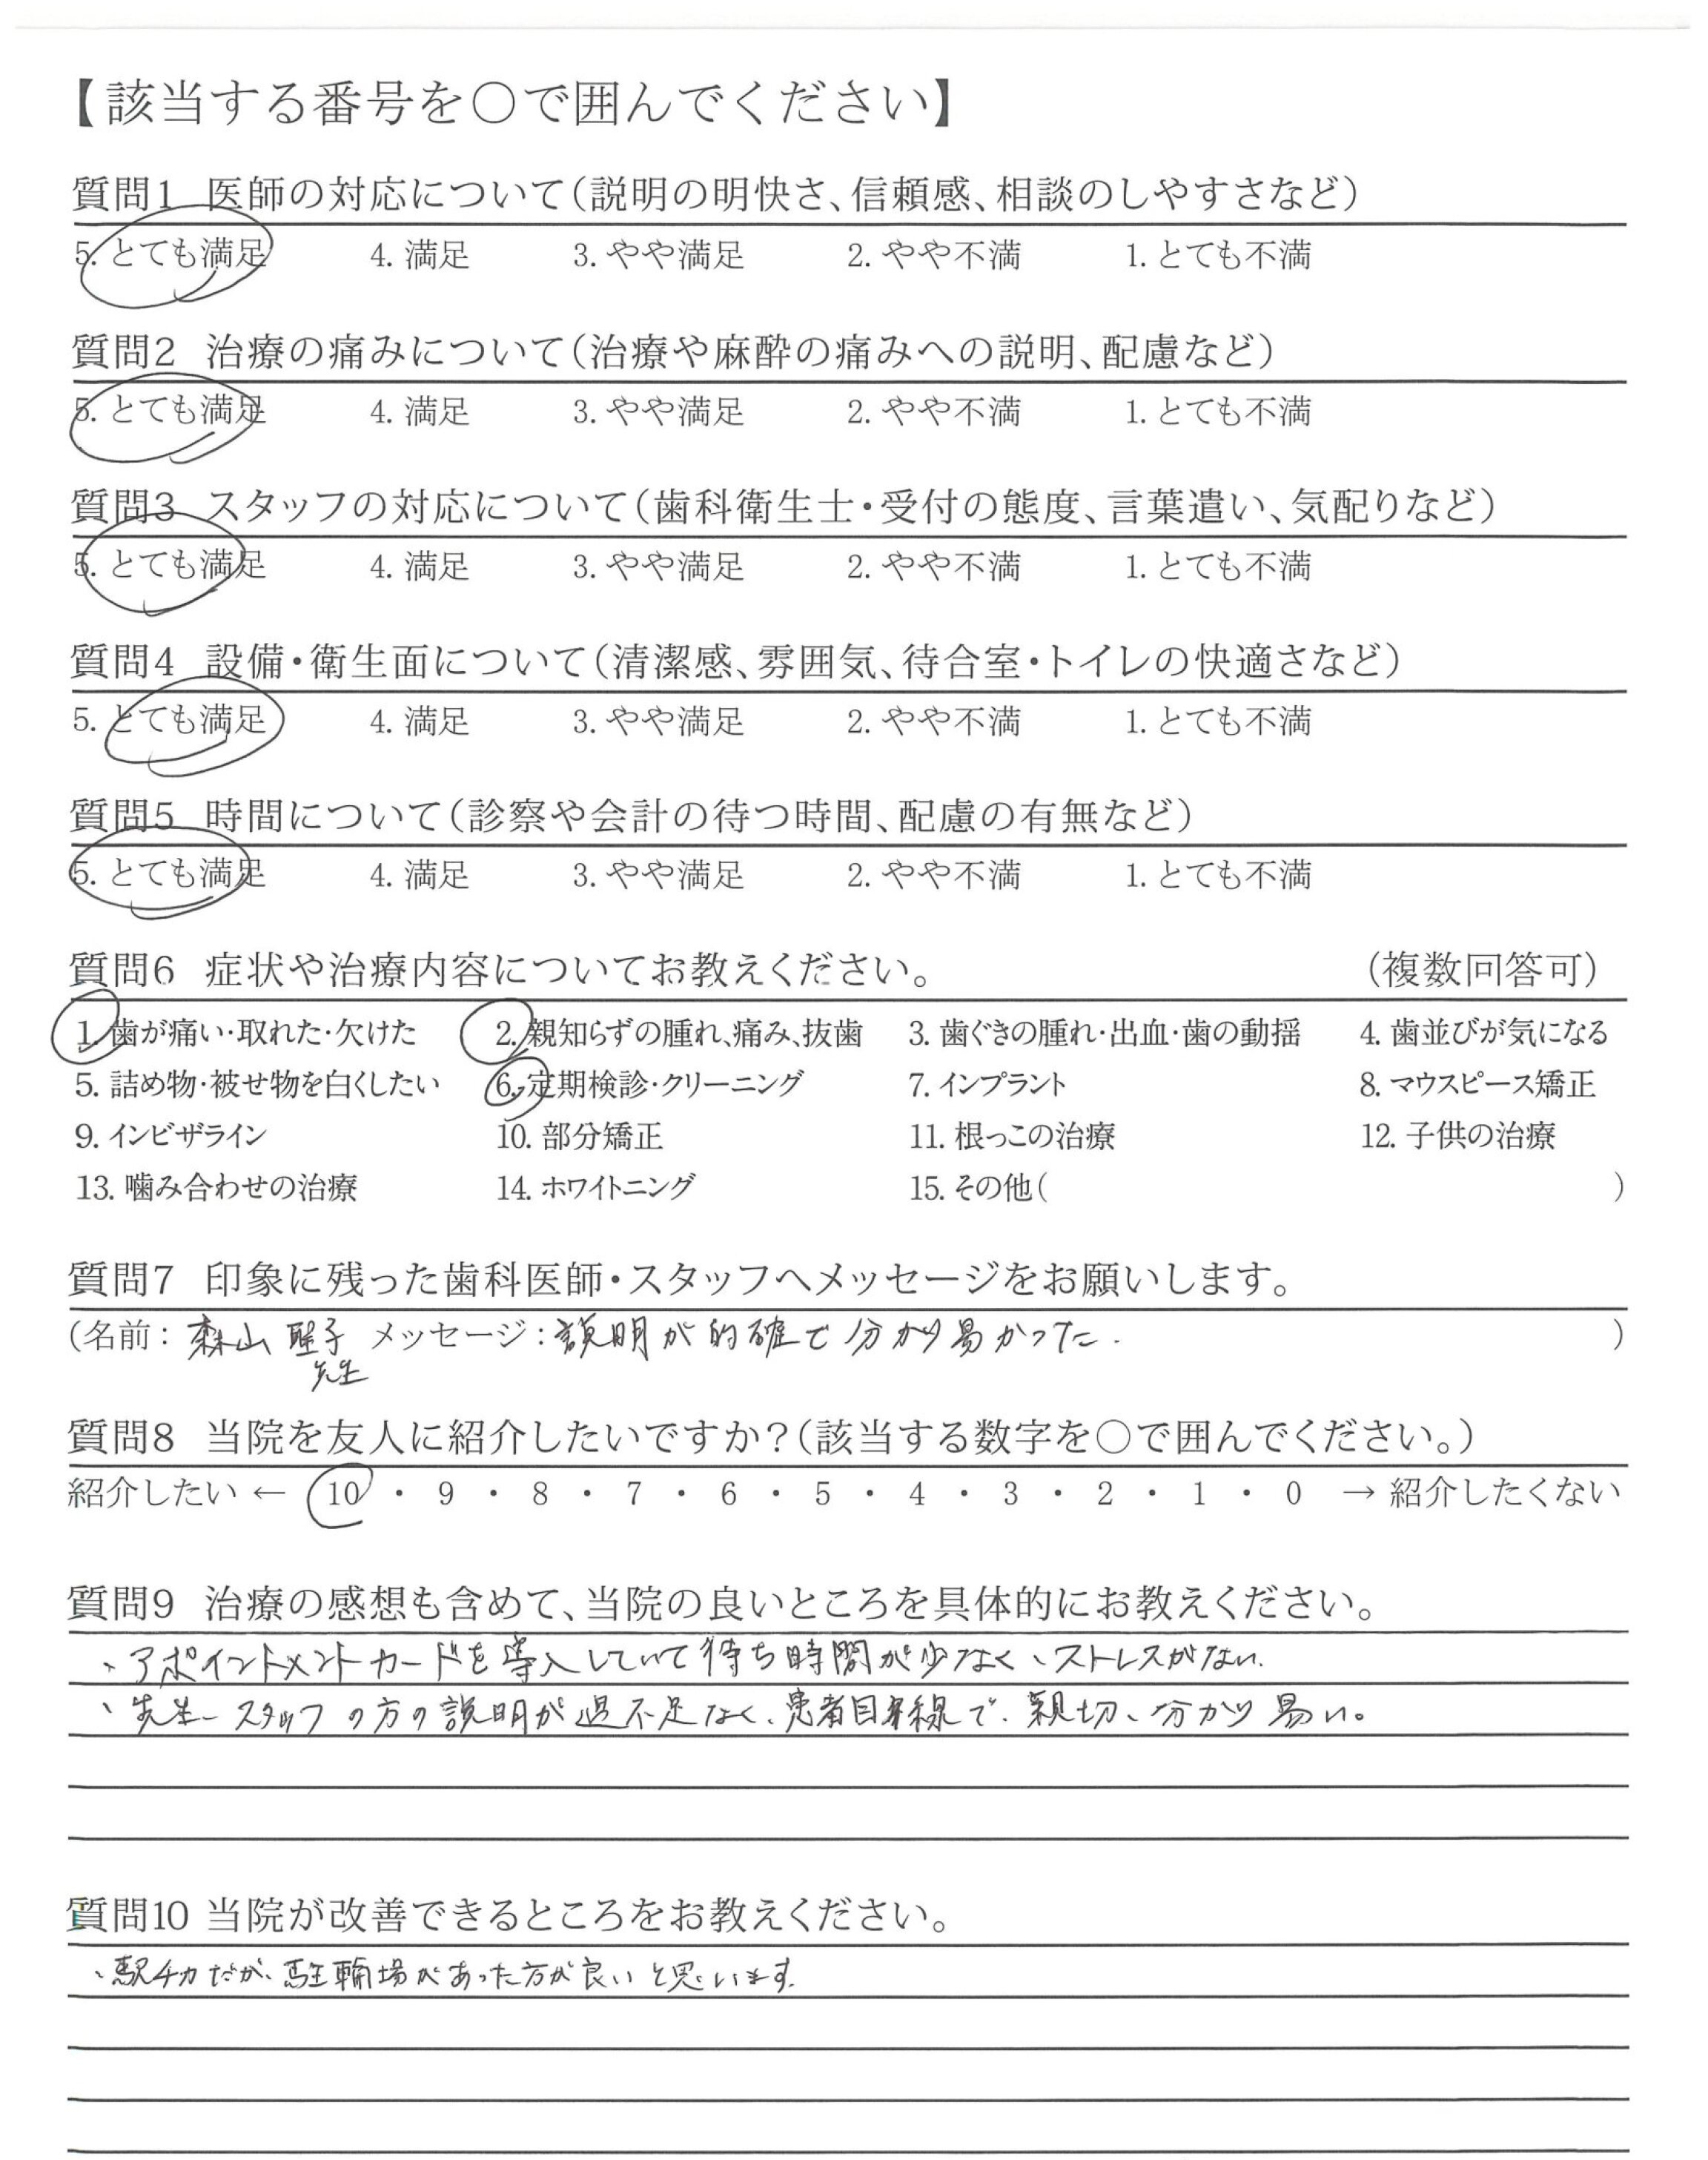 【該当する番号を〇で囲んでください】
質問1 医師の対応について(説明の明快さ、信頼感、相談のしやすさなど)
5. とても満足 4. 満足 3. やや満足 2. やや不満 1. とても不満
質問2 治療の痛みについて(治療や麻酔の痛みへの説明、配慮など)
5. とても満足 4. 満足 3. やや満足 2. やや不満 1. とても不満
質問3 スタッフの対応について(歯科衛生士・受付の態度、言葉遣い、気配りなど)
5. とても満足 4. 満足 3. やや満足 2. やや不満 1. とても不満
質問4 設備・衛生面について(清潔感、雰囲気、待合室・トイレの快適さなど)
5. とても満足 4. 満足 3. やや満足 2. やや不満 1. とても不満
質問5 時間について(診察や会計の待つ時間、配慮の有無など)
5. とても満足 4. 満足 3. やや満足 2. やや不満 1. とても不満
質問6 症状や治療内容についてお教えください。 (複数回答可)
1. 歯が痛い・取れた・欠けた 2. 親知らずの腫れ、痛み、抜歯 3. 歯ぐきの腫れ・出血・歯の動揺 4. 歯並びが気になる
5. 詰め物・被せ物を白くしたい 6. 定期検診・クリーニング 7. インプラント 8. マウスピース矯正
9. インビザライン 10. 部分矯正 11. 根っこの治療 12. 子供の治療
13. 噛み合わせの治療 14. ホワイトニング 15. その他( )
質問7 印象に残った歯科医師・スタッフへメッセージをお願いします。
(名前: 森山 聖子 メッセージ: 説明が的確で分かり易かった. )
先生
質問8 当院を友人に紹介したいですか?(該当する数字を〇で囲んでください。)
紹介したい ← 10 ・ 9 ・ 8 ・ 7 ・ 6 ・ 5 ・ 4 ・ 3 ・ 2 ・ 1 ・ 0 → 紹介したくない
質問9 治療の感想も含めて、当院の良いところを具体的にお教えください。
、アポイントメントカードを導入していて待ち時間が少なく、ストレスがない.
、先生、スタッフの方の説明が過不足なく、患者目線で、親切、分かり易い。
質問10 当院が改善できるところをお教えください。
、駅チカだが、駐輪場があった方が良いと思います.